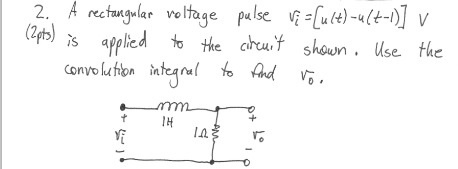 2. A rectangular voltage pulse vi = [u(t) - u(t-1)] V
(2pts) is applied to the circuit shown. Use the
convolution integral to find vo.
+ 1H +
vi 1Ω vo
- -